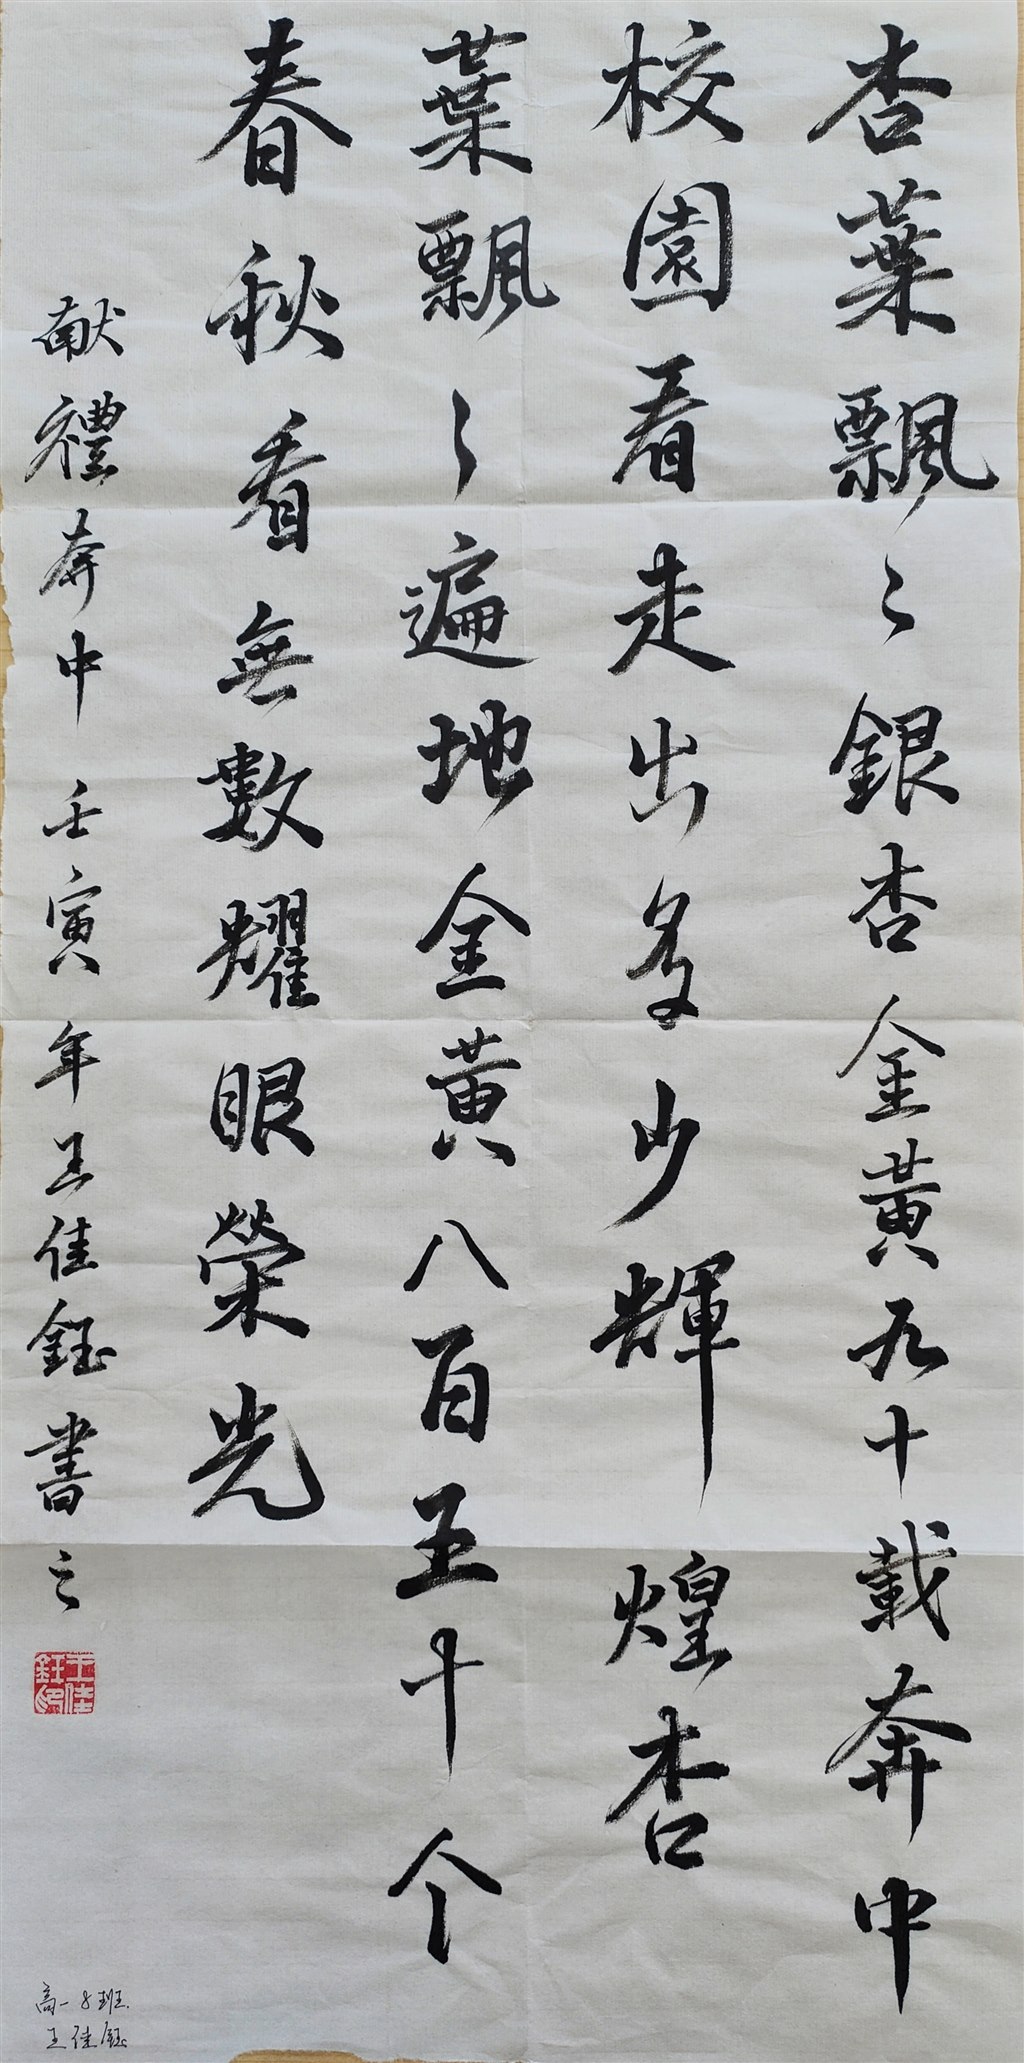 杏葉飄〻銀杏金黃九十載奔中
校園看走出多少輝煌杏
葉飄〻遍地金黃八百五十个
春秋看無數耀眼榮光
献禮奔中壬寅年王佳鈺書之
王佳鈺印
高一8班
王佳鈺